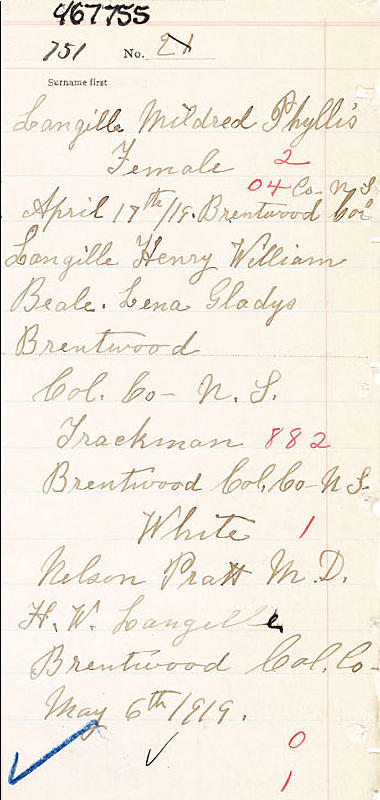 467755
751 No. 21
Surname first
Langille Mildred Phyllis
Female 2
04 Co- N S.
April 17th/19. Brentwood Col
Langille Henry William
Beale. Lena Gladys
Brentwood
Col. Co- N. S.
Trackman 882
Brentwood Col. Co- N S.
White 1
Nelson Pratt M. D.
H. W. Langille
Brentwood Col. Co-
May 6th/1919.
0
1